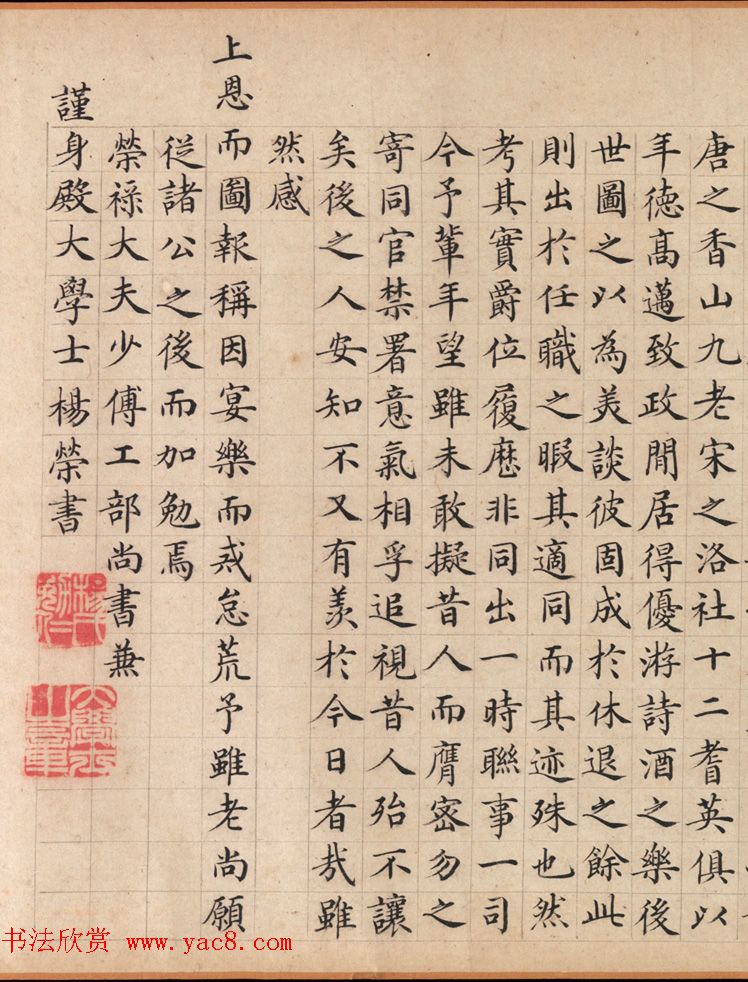 唐之香山九老宋之洛社十二耆英俱以
年德高邁致政閒居得優游詩酒之樂後
世圖之以為美談彼固成於休退之餘此
則出於任職之暇其適同而其迹殊也然
考其實爵位履歷非同出一時聯事一司
今予輩年望雖未敢擬昔人而膺密勿之
寄同官禁署意氣相孚追視昔人殆不讓
矣後之人安知不又有羨於今日者㦲雖
然感
上恩而圖報稱因宴樂而戒怠荒予雖老尚願
從諸公之後而加勉焉
榮祿大夫少傅工部尚書兼
謹身殿大學士楊榮書
书法欣赏 www.yac8.com